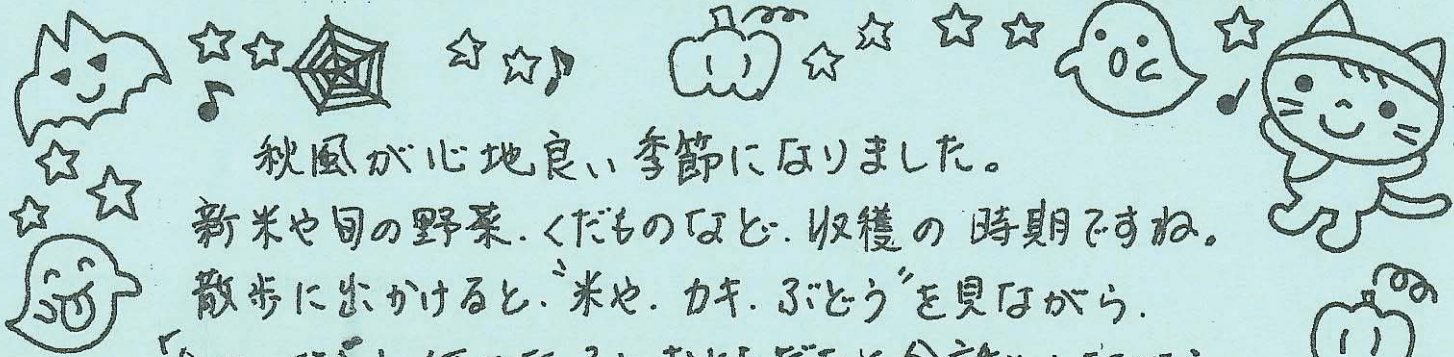 秋風が心地良い季節になりました。
新米や旬の野菜、くだものなど、収穫の時期ですね。
散歩に出かけると、〝米や、カキ、ぶどう〟を見ながら、